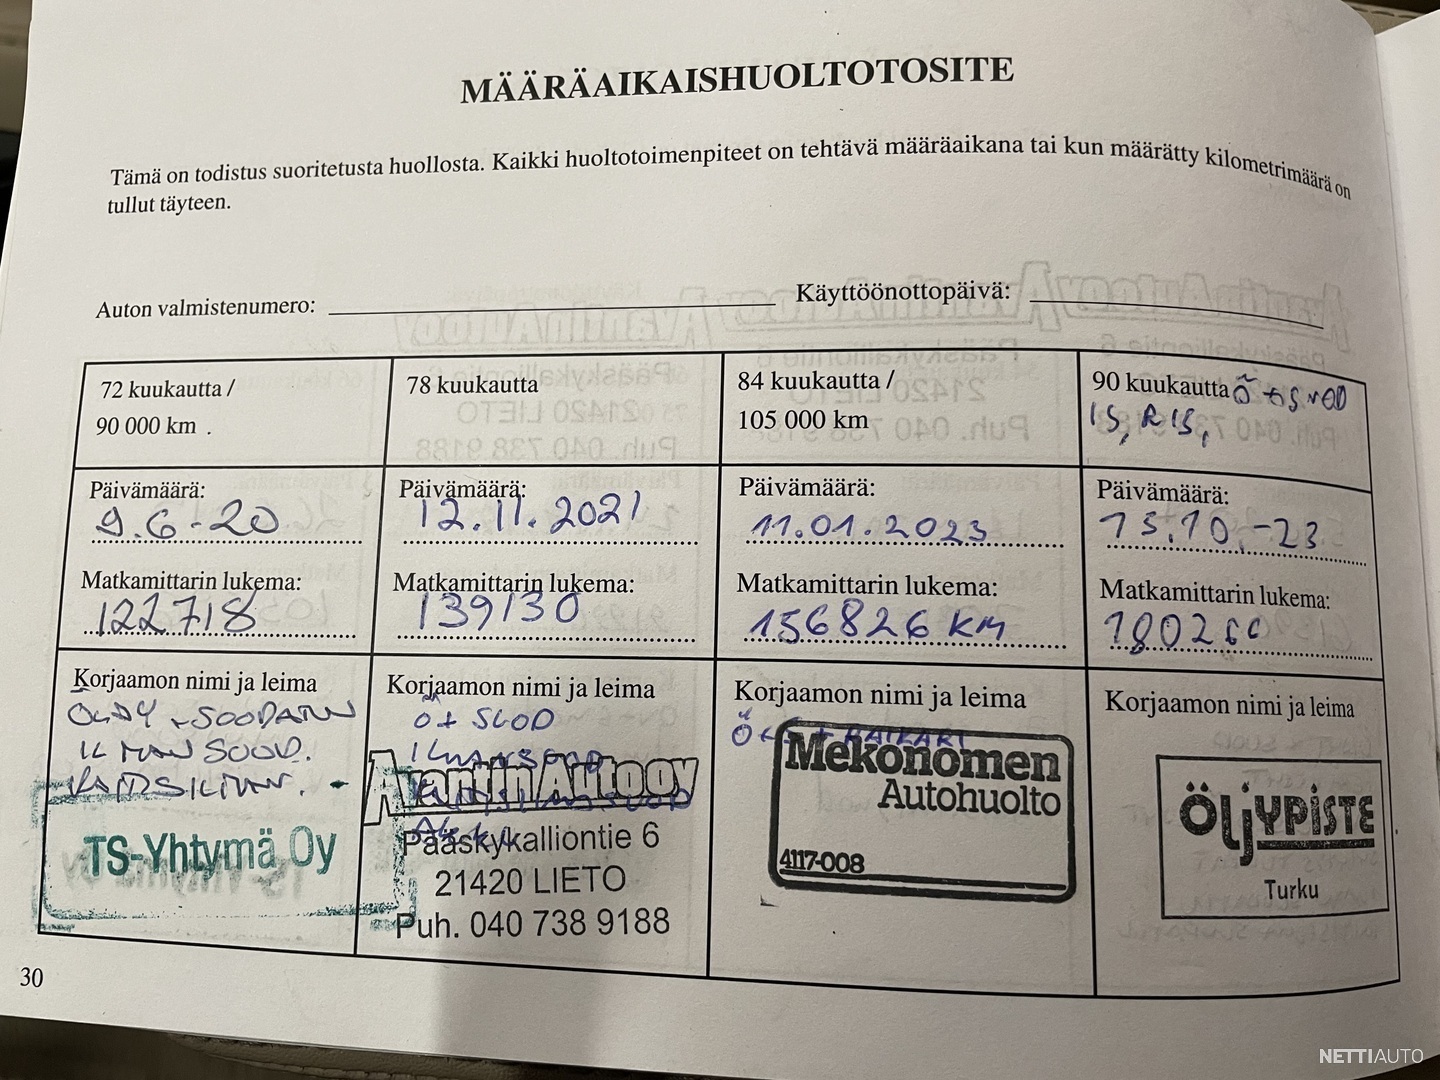 MÄÄRÄAIKAISHUOLTOTOSITE
Tämä on todistus suoritetusta huollosta. Kaikki huoltotoimenpiteet on tehtävä määräaikana tai kun määrätty kilometrimäärä on
tullut täyteen.
Auton valmistenumero:
Käyttöönottopäivä:
72 kuukautta /
90 000 km
Päivämäärä:
9.6-20
Matkamittarin lukema:
122718
Korjaamon nimi ja leima
TS-Yhtymä Oy
78 kuukautta
Päivämäärä:
12.11.2021
Matkamittarin lukema:
139130
Korjaamon nimi ja leima
Ö+ SUOD
Avantin Auto oy
Pääskykalliontie 6
21420 LIETO
Puh. 040 738 9188
84 kuukautta /
105 000 km
Päivämäärä:
11.01.2023
Matkamittarin lukema:
156826 KM
Korjaamon nimi ja leima
Mekonomen
Autohuolto
4117-008
90 kuukautta
Päivämäärä:
13.10.-23
Matkamittarin lukema:
Korjaamon nimi ja leima
ÖLJYPISTE
Turku
30
NETTIAUTO